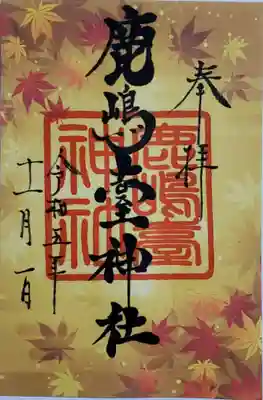 奉拝
鹿嶋台神社
鹿嶋臺神社
令和五年
十一月一日